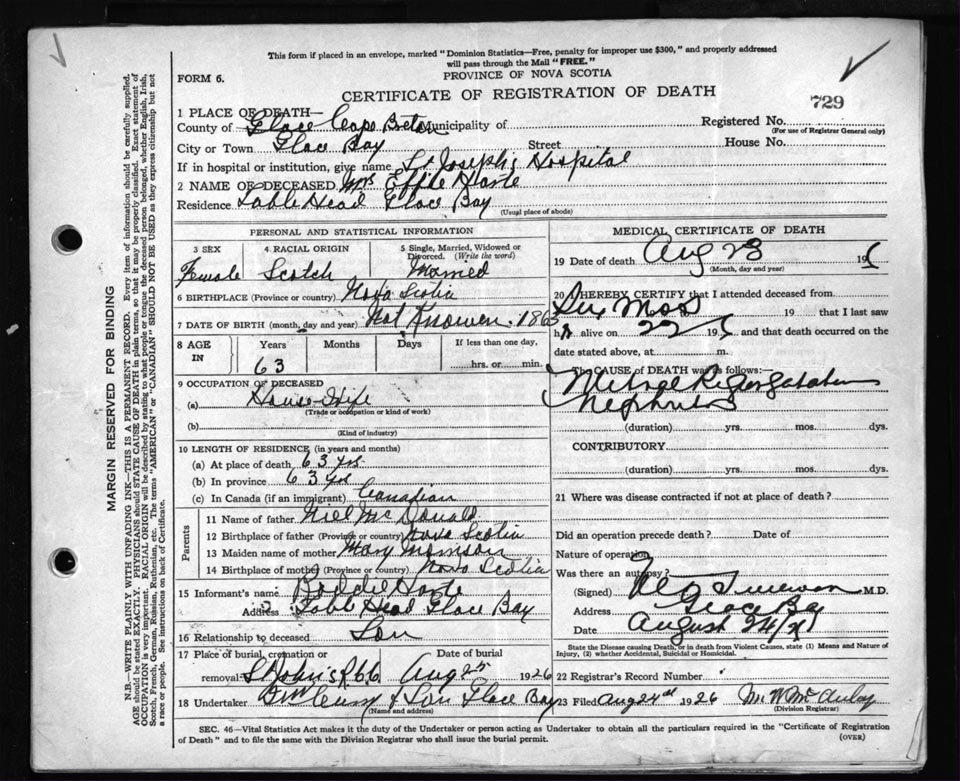 This form if placed in an envelope, marked "Dominion Statistics—Free, penalty for improper use $300," and properly addressed
will pass through the Mail "FREE."
FORM 6.
PROVINCE OF NOVA SCOTIA
CERTIFICATE OF REGISTRATION OF DEATH
729
1 PLACE OF DEATH—
County of Glace Cape Breton Municipality of
Registered No.
(For use of Registrar General only)
City or Town Glace Bay Street House No.
If in hospital or institution, give name St Joseph's Hospital
2 NAME OF DECEASED Mrs Effie Harte
Residence Table Head Glace Bay
(Usual place of abode)
PERSONAL AND STATISTICAL INFORMATION
3 SEX 4 RACIAL ORIGIN 5 Single, Married, Widowed or Divorced. (Write the word)
Female Scotch Married
6 BIRTHPLACE (Province or country) Nova Scotia
7 DATE OF BIRTH (month, day and year) Not Knowen. 1863
8 AGE IN Years Months Days If less than one day,
63 hrs. or min.
9 OCCUPATION OF DECEASED
(a) House Wife
(Trade or occupation or kind of work)
(b)
(Kind of industry)
10 LENGTH OF RESIDENCE (in years and months)
(a) At place of death 63 yrs.
(b) In province 63 yrs
(c) In Canada (if an immigrant) Canadian
Parents
11 Name of father Niel McDonald
12 Birthplace of father (Province or country) Nova Scotia
13 Maiden name of mother Mary Morrison
14 Birthplace of mother (Province or country) Nova Scotia
15 Informant's name Harte
Address Table Head Glace Bay
16 Relationship to deceased Son
17 Place of burial, cremation or removal Date of burial
St John's Aug 1926
18 Undertaker & Son Glace Bay
(Name and address)
MEDICAL CERTIFICATE OF DEATH
19 Date of death Aug 23 19
(Month, day and year)
20 I HEREBY CERTIFY that I attended deceased from
Six Mos 19 that I last saw
h alive on 22 19 and that death occurred on the
date stated above, at m.
The CAUSE of DEATH was as follows:
Mitral Regurgitation
Nephritis
(duration) yrs. mos. dys.
CONTRIBUTORY
(duration) yrs. mos. dys.
21 Where was disease contracted if not at place of death?
Did an operation precede death? Date of
Nature of operation
Was there an autopsy?
(Signed) M.D.
Address Glace Bay
Date August 24/26
State the Disease causing Death, or in death from Violent Causes, state (1) Means and Nature of
Injury, (2) whether Accidental, Suicidal or Homicidal.
22 Registrar's Record Number
23 Filed Aug 24th 1926 M. W. McAulay
(Division Registrar)
SEC. 46—Vital Statistics Act makes it the duty of the Undertaker or person acting as Undertaker to obtain all the particulars required in the "Certificate of Registration
of Death" and to file the same with the Division Registrar who shall issue the burial permit.
(OVER)
MARGIN RESERVED FOR BINDING
N.B.—WRITE PLAINLY WITH UNFADING INK—THIS IS A PERMANENT RECORD. Every item of information should be carefully supplied.
AGE should be stated EXACTLY. PHYSICIANS should STATE CAUSE OF DEATH in plain terms, so that it may be properly classified. Exact statement of
OCCUPATION is very important. RACIAL ORIGIN will be described by stating to what people or tongue the deceased person belonged, whether English, Irish,
Scotch, French, German, Russian, Ruthenian, etc. The terms "AMERICAN" or "CANADIAN" SHOULD NOT BE USED as they express citizenship but not
a race or people. See instructions on back of Certificate.